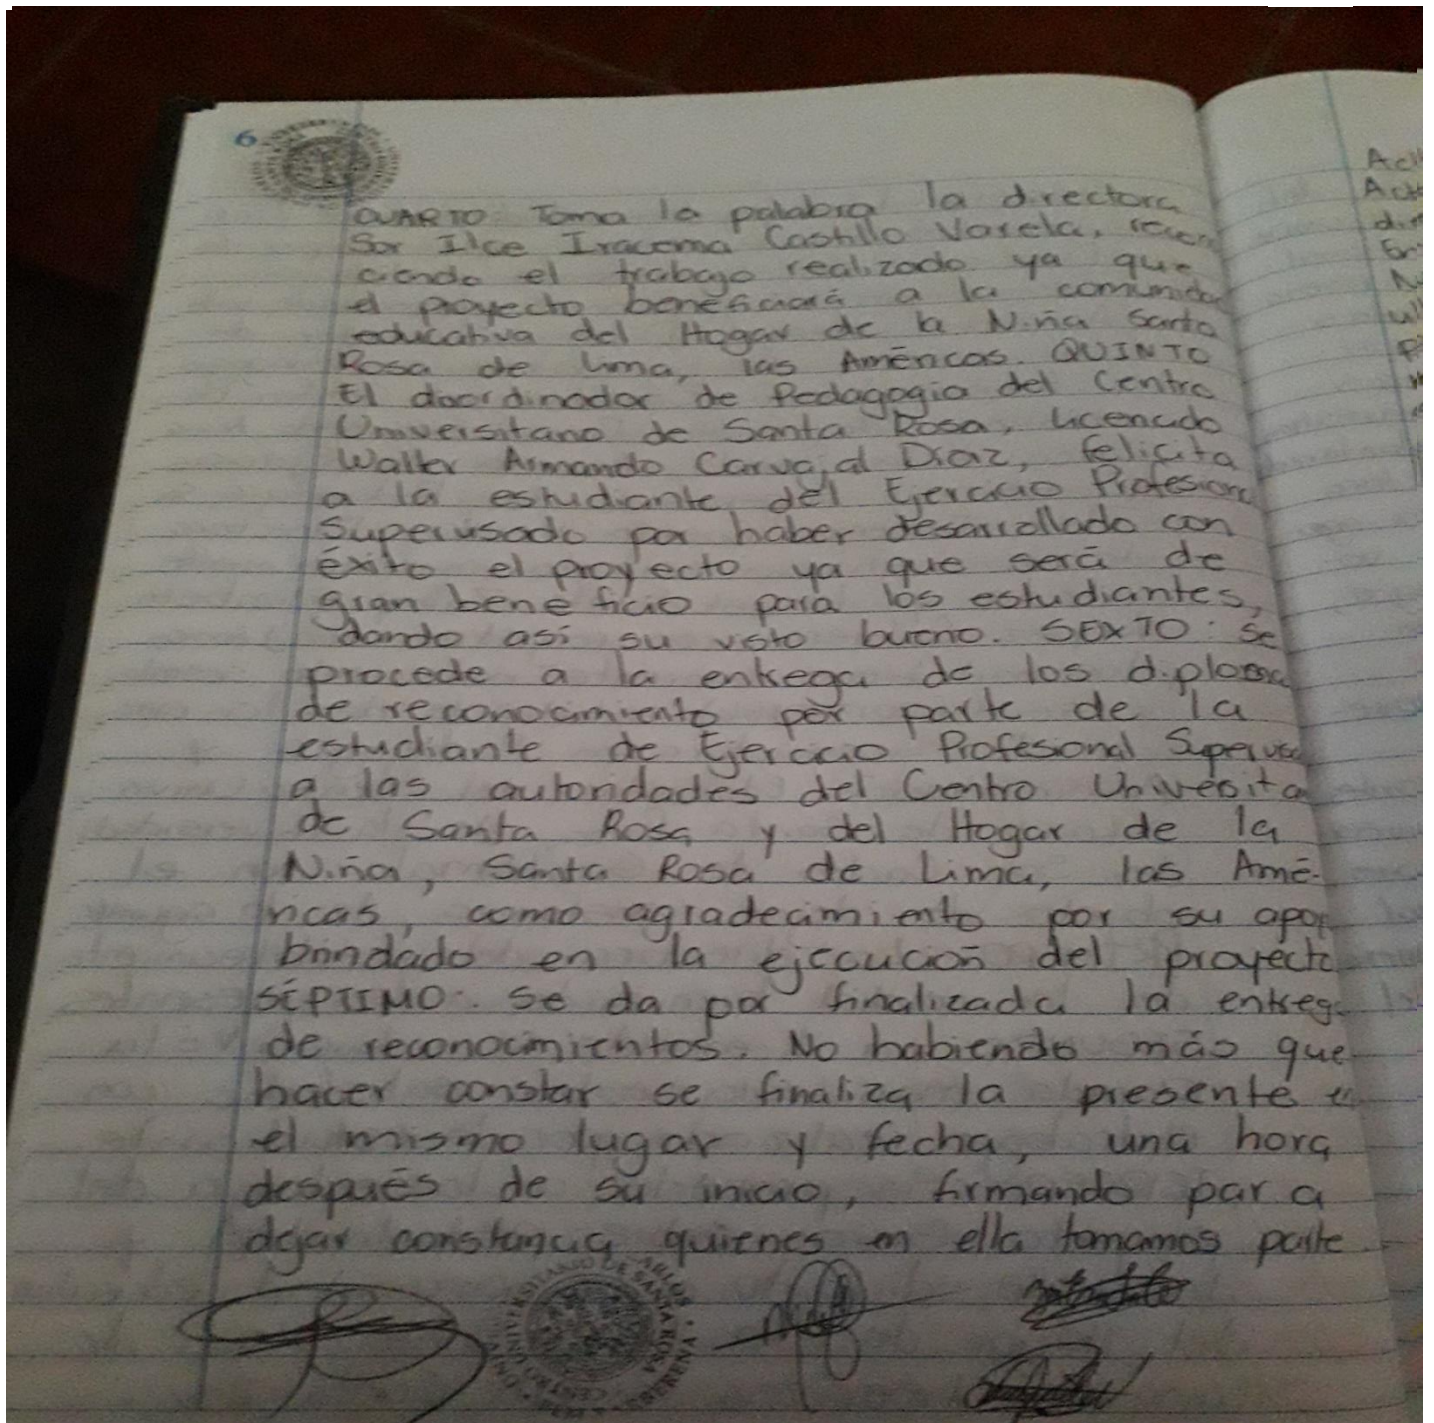 6
CUARTO Toma la palabra la directora
Sor Ilce Iracema Castillo Varela,
ciendo el trabajo realizado ya que
el proyecto beneficiará a la comunida
educativa del Hogar de la Niña Santa
Rosa de Lima, las Américas. QUINTO
El doordinador de Pedagogía del Centro
Universitario de Santa Rosa, licenciado
Walter Armando Carvajal Díaz, felicita
a la estudiante del Ejercicio Profesional
Supervisado por haber desarrollado con
éxito el proyecto ya que será de
gran beneficio para los estudiantes,
dando así su visto bueno. SEXTO: Se
procede a la entrega de los diploma
de reconocimiento por parte de la
estudiante de Ejercicio Profesional Supervisa
a las autoridades del Centro Univesita
de Santa Rosa y del Hogar de la
Niña, Santa Rosa de Lima, las Amé-
ricas, como agradecimiento por su apo
brindado en la ejecución del proyecto
SÉPTIMO: Se da por finalizada la entrega
de reconocimientos. No habiendo más que
hacer constar se finaliza la presente en
el mismo lugar y fecha, una hora
después de su inicio, firmando para
dejar constancia quienes en ella tomamos parte.
CENTRO UNIVERSITARIO DE SANTA ROSA